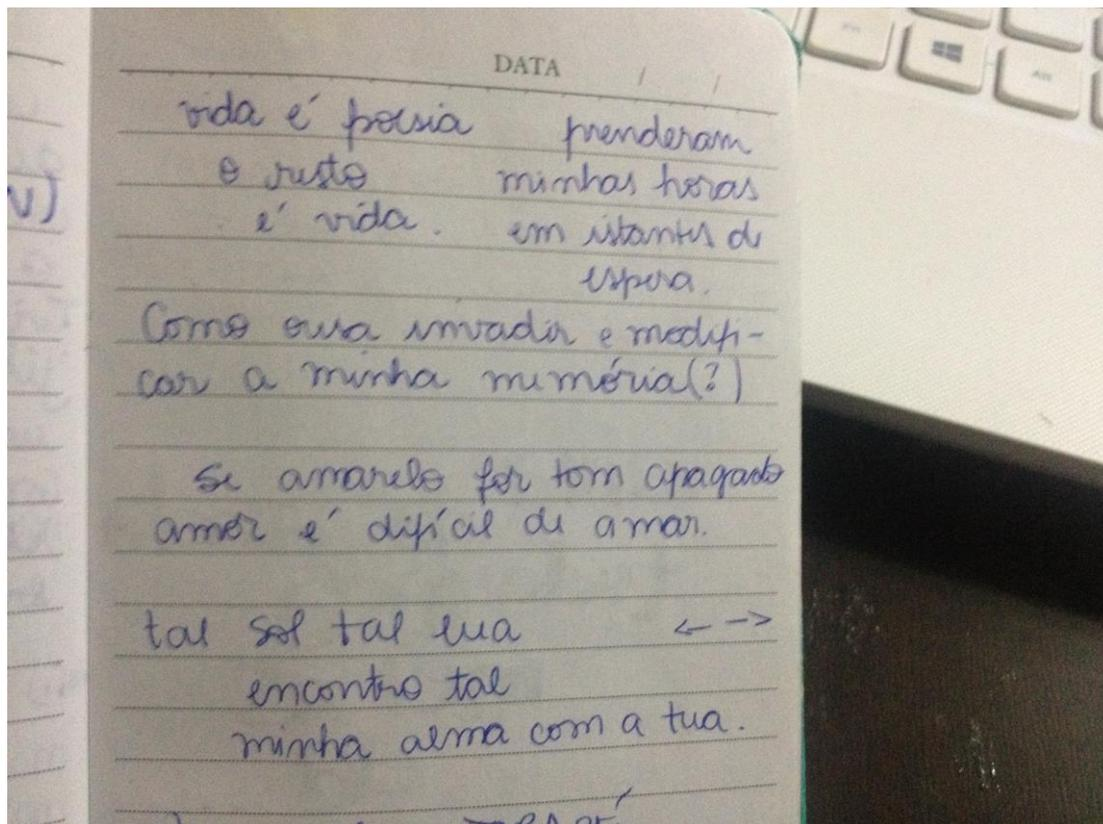 DATA / /
vida é poesia
o resto
é vida.
prenderam
minhas horas
em istantes de
espera.
Como ousa invadir e modifi-
car a minha memória(?)
Se amarelo for tom apagado
amor é difícil de amar.
tal sol tal lua <- ->
encontro tal
minha alma com a tua.